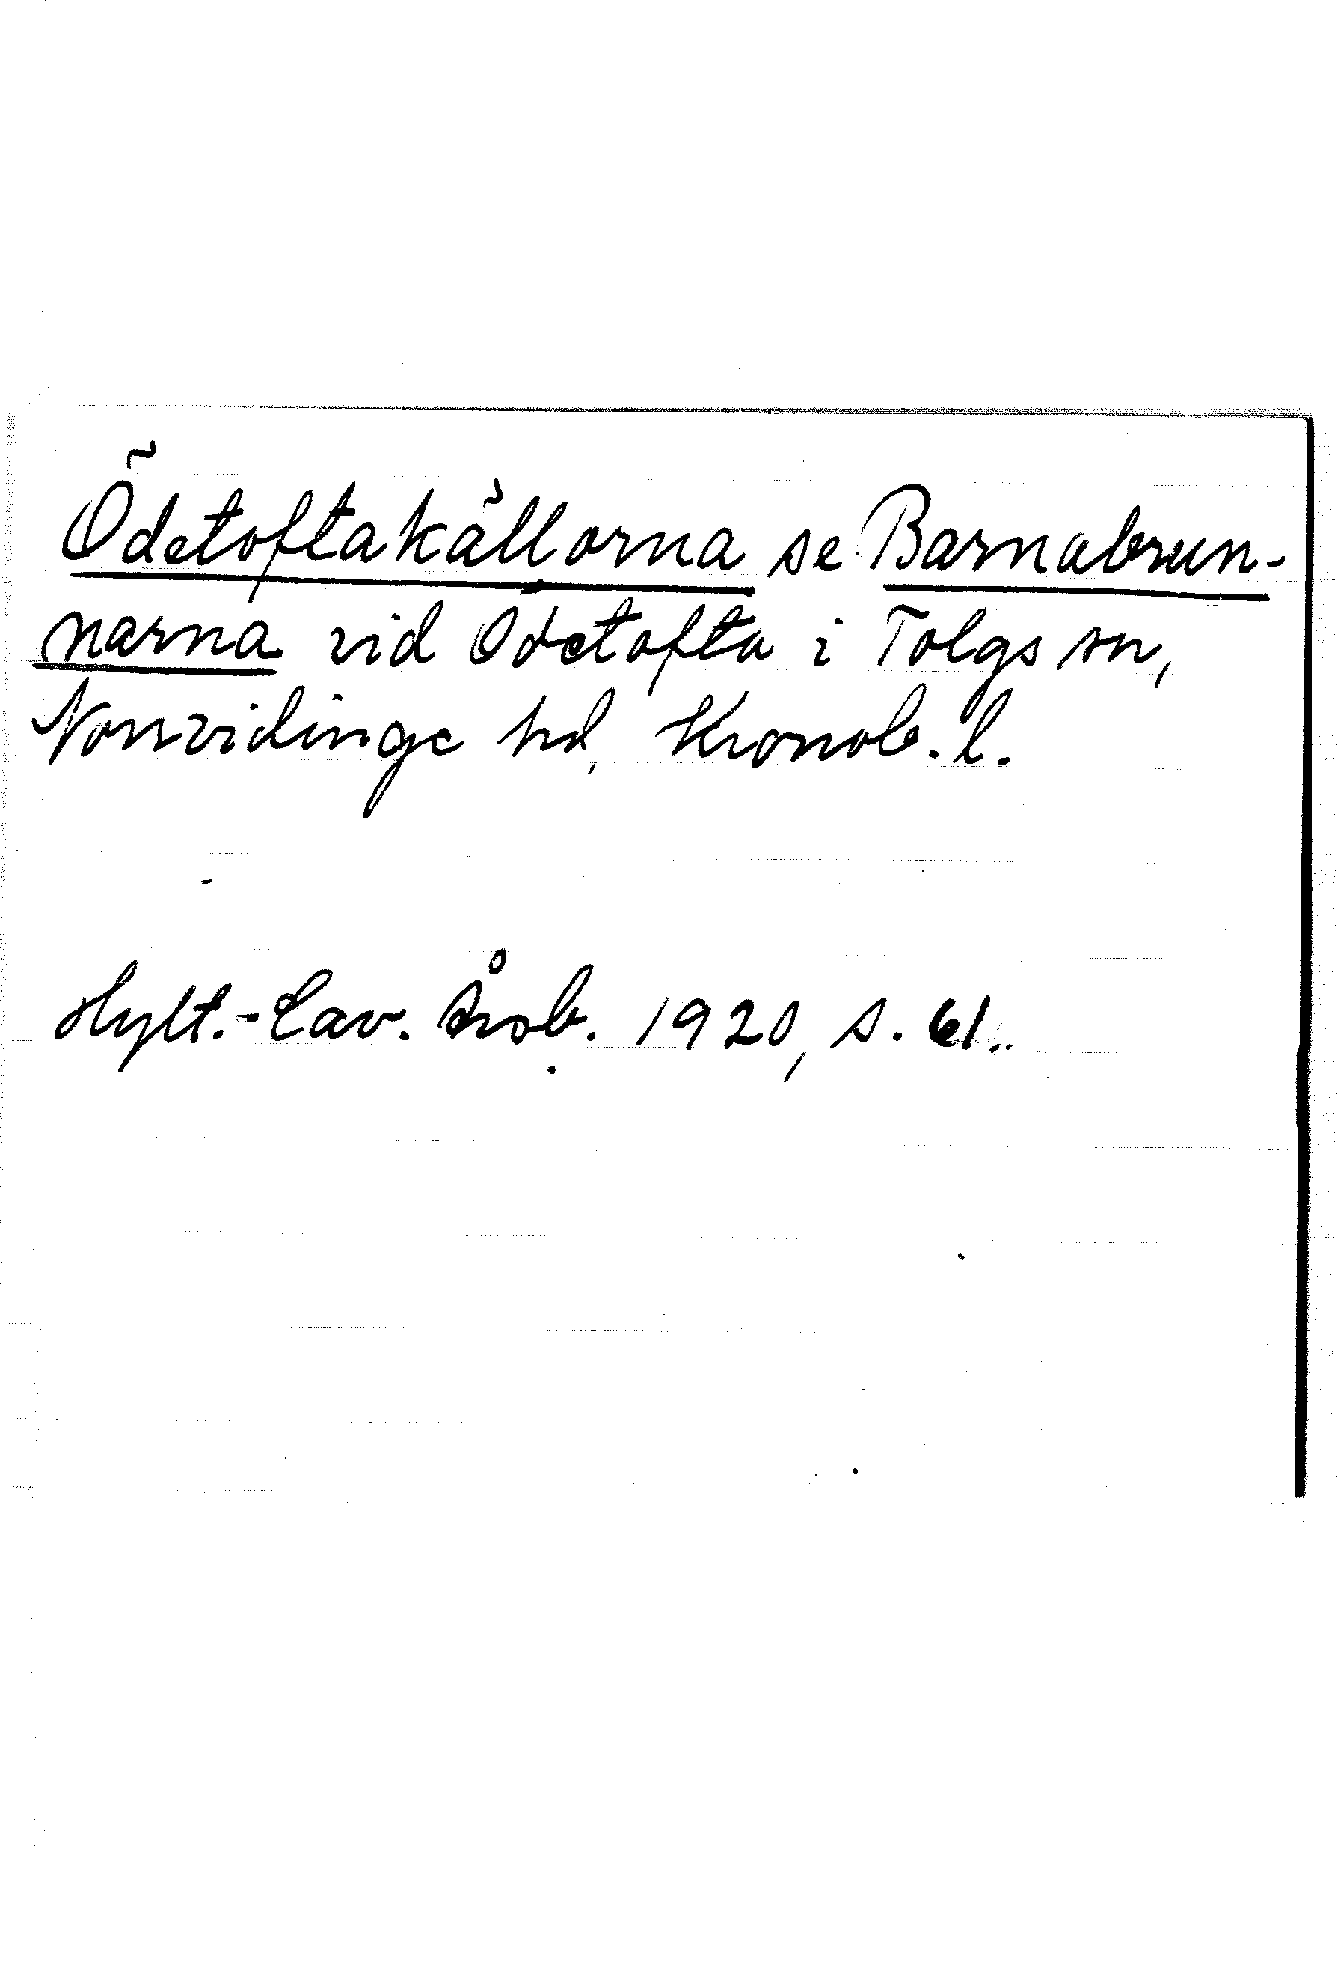 Ödetoftakällorna se Barnabrun-
narna vid Ödetofta i Tolgs sn,
Norrvidinge hd, Kronob. l.
Hylt.-Cav. Årsb. 1920, s. 61.